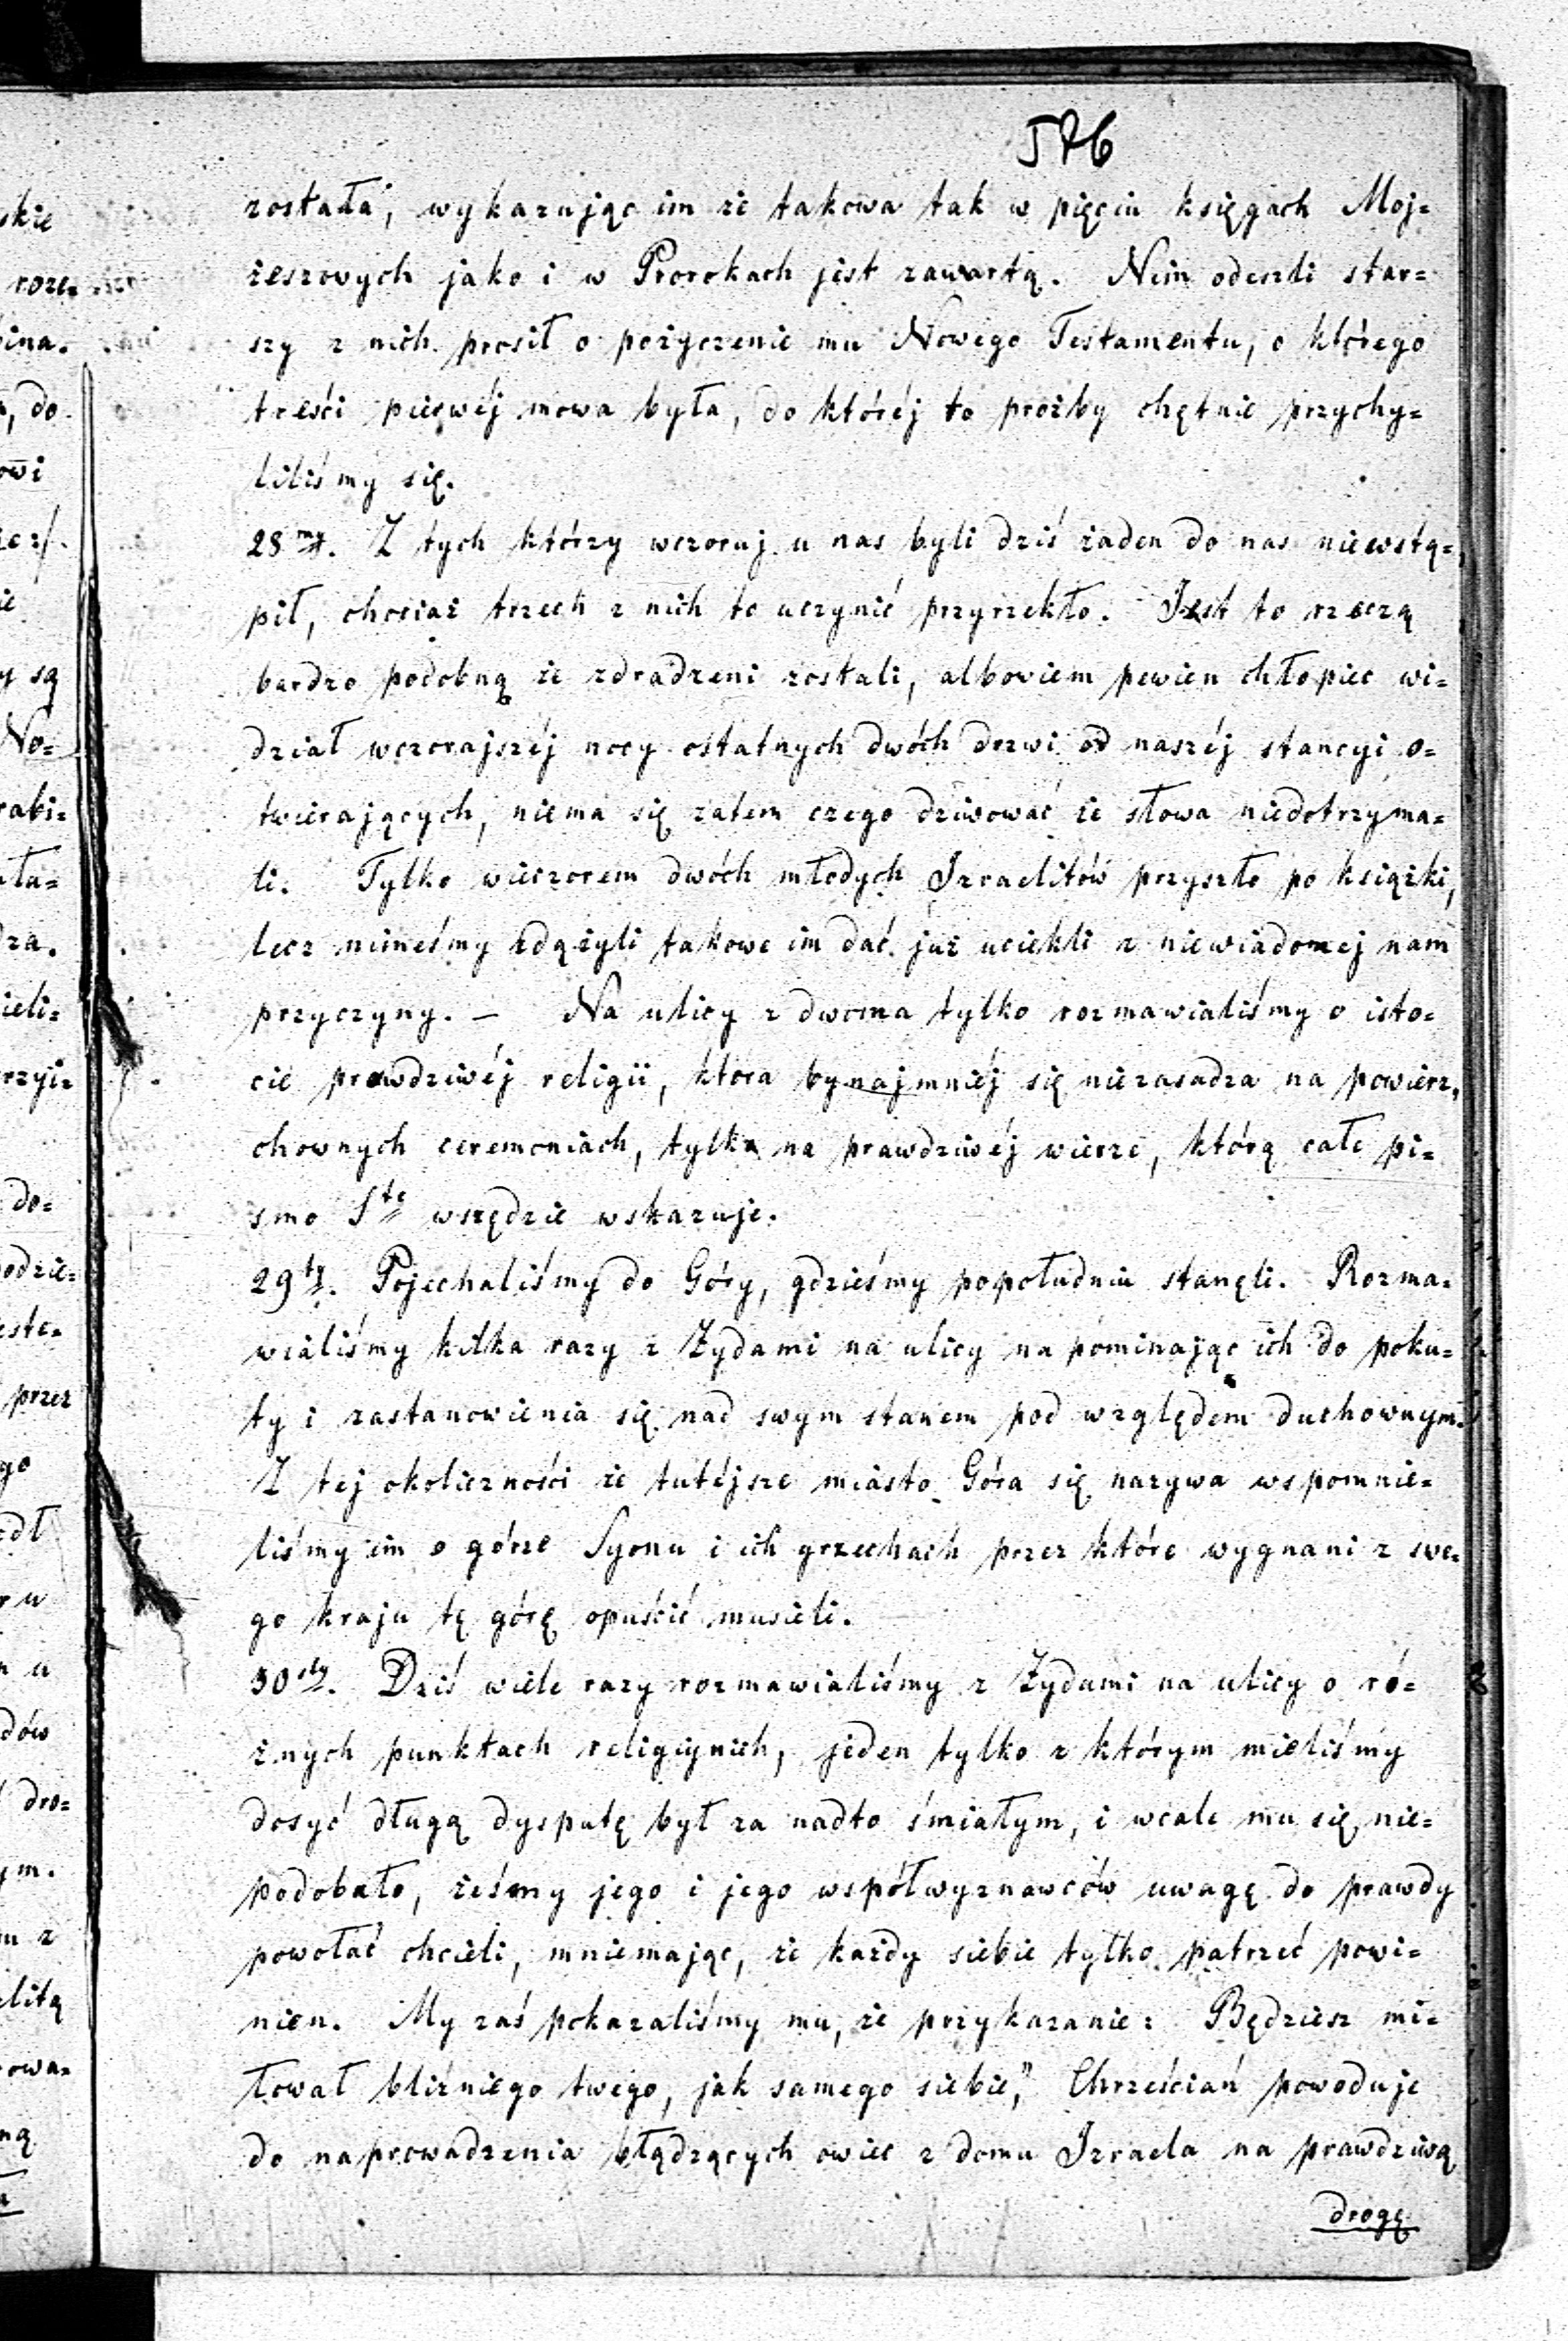 576
została, wykazując im że takowa tak w pięciu księgach Moj=
żeszowych jako i w Prorokach jest zawartą. Nim odeszli star=
szy z nich prosił o pożyczenie mu Nowego Testamentu, o którego
treści pierwéj mowa była, do któréj to prożby chętnie przychy=
liliśmy się.
28my. Z tych którzy wczoraj u nas byli dziś żaden do nas niewstą=
pił, chociaż trzech z nich to uczynić przyrzekło. Jest to rzeczą
bardzo podobną że zdradzeni zostali, albowiem pewien chłopiec wi=
dział wczorajszéj nocy ostatnych dwóch drzwi od naszéj stancyi o=
twierających, niema się zatem czego dziwować że słowa niedotrzyma=
li. Tylko wieczorem dwóch młodych Izraelitów przyszło po książki,
lecz nimeśmy zdążyli takowe im dać już uciekli z niewiadomej nam
przyczyny. – Na ulicy z dwoma tylko rozmawialiśmy o isto=
cie prawdziwéj religii, która bynajmniéj się niezasadza na powierz=
chownych ceremoniach, tylko na prawdziwéj wierze, którą całe pi=
smo Ste wszędzie wskazuje.
29ty. Pojechaliśmy do Góry, gdzieśmy popołudniu stanęli. Rozma=
wialiśmy kilka razy z Żydami na ulicy napominając ich do poku=
ty i zastanowienia się nad swym stanem pod względem duchownym.
Z tej okoliczności że tutéjsze miasto Góra się nazywa wspomnie=
liśmy im o górze Syonu i ich grzechach przez które wygnani z swe=
go kraju tę górę opuścić musieli.
30sty. Dziś wiele razy rozmawialiśmy z Żydami na ulicy o ró=
żnych punktach religijnich, jeden tylko z którym mieliśmy
dosyć długą dysputę był za nadto śmiałym, i wcale mu się nie=
podobało, żeśmy jego i jego współwyznawców uwagę do prawdy
powołać chcieli, mniemając, że każdy siebie tylko patrzeć powi=
nien. My zaś pokazaliśmy mu, że przykazanie: Będziesz mi=
łował bliźniego twego, jak samego siebie," Chrześcian powoduje
do naprowadzenia błądzących owiec z domu Izraela na prawdziwą
drogę